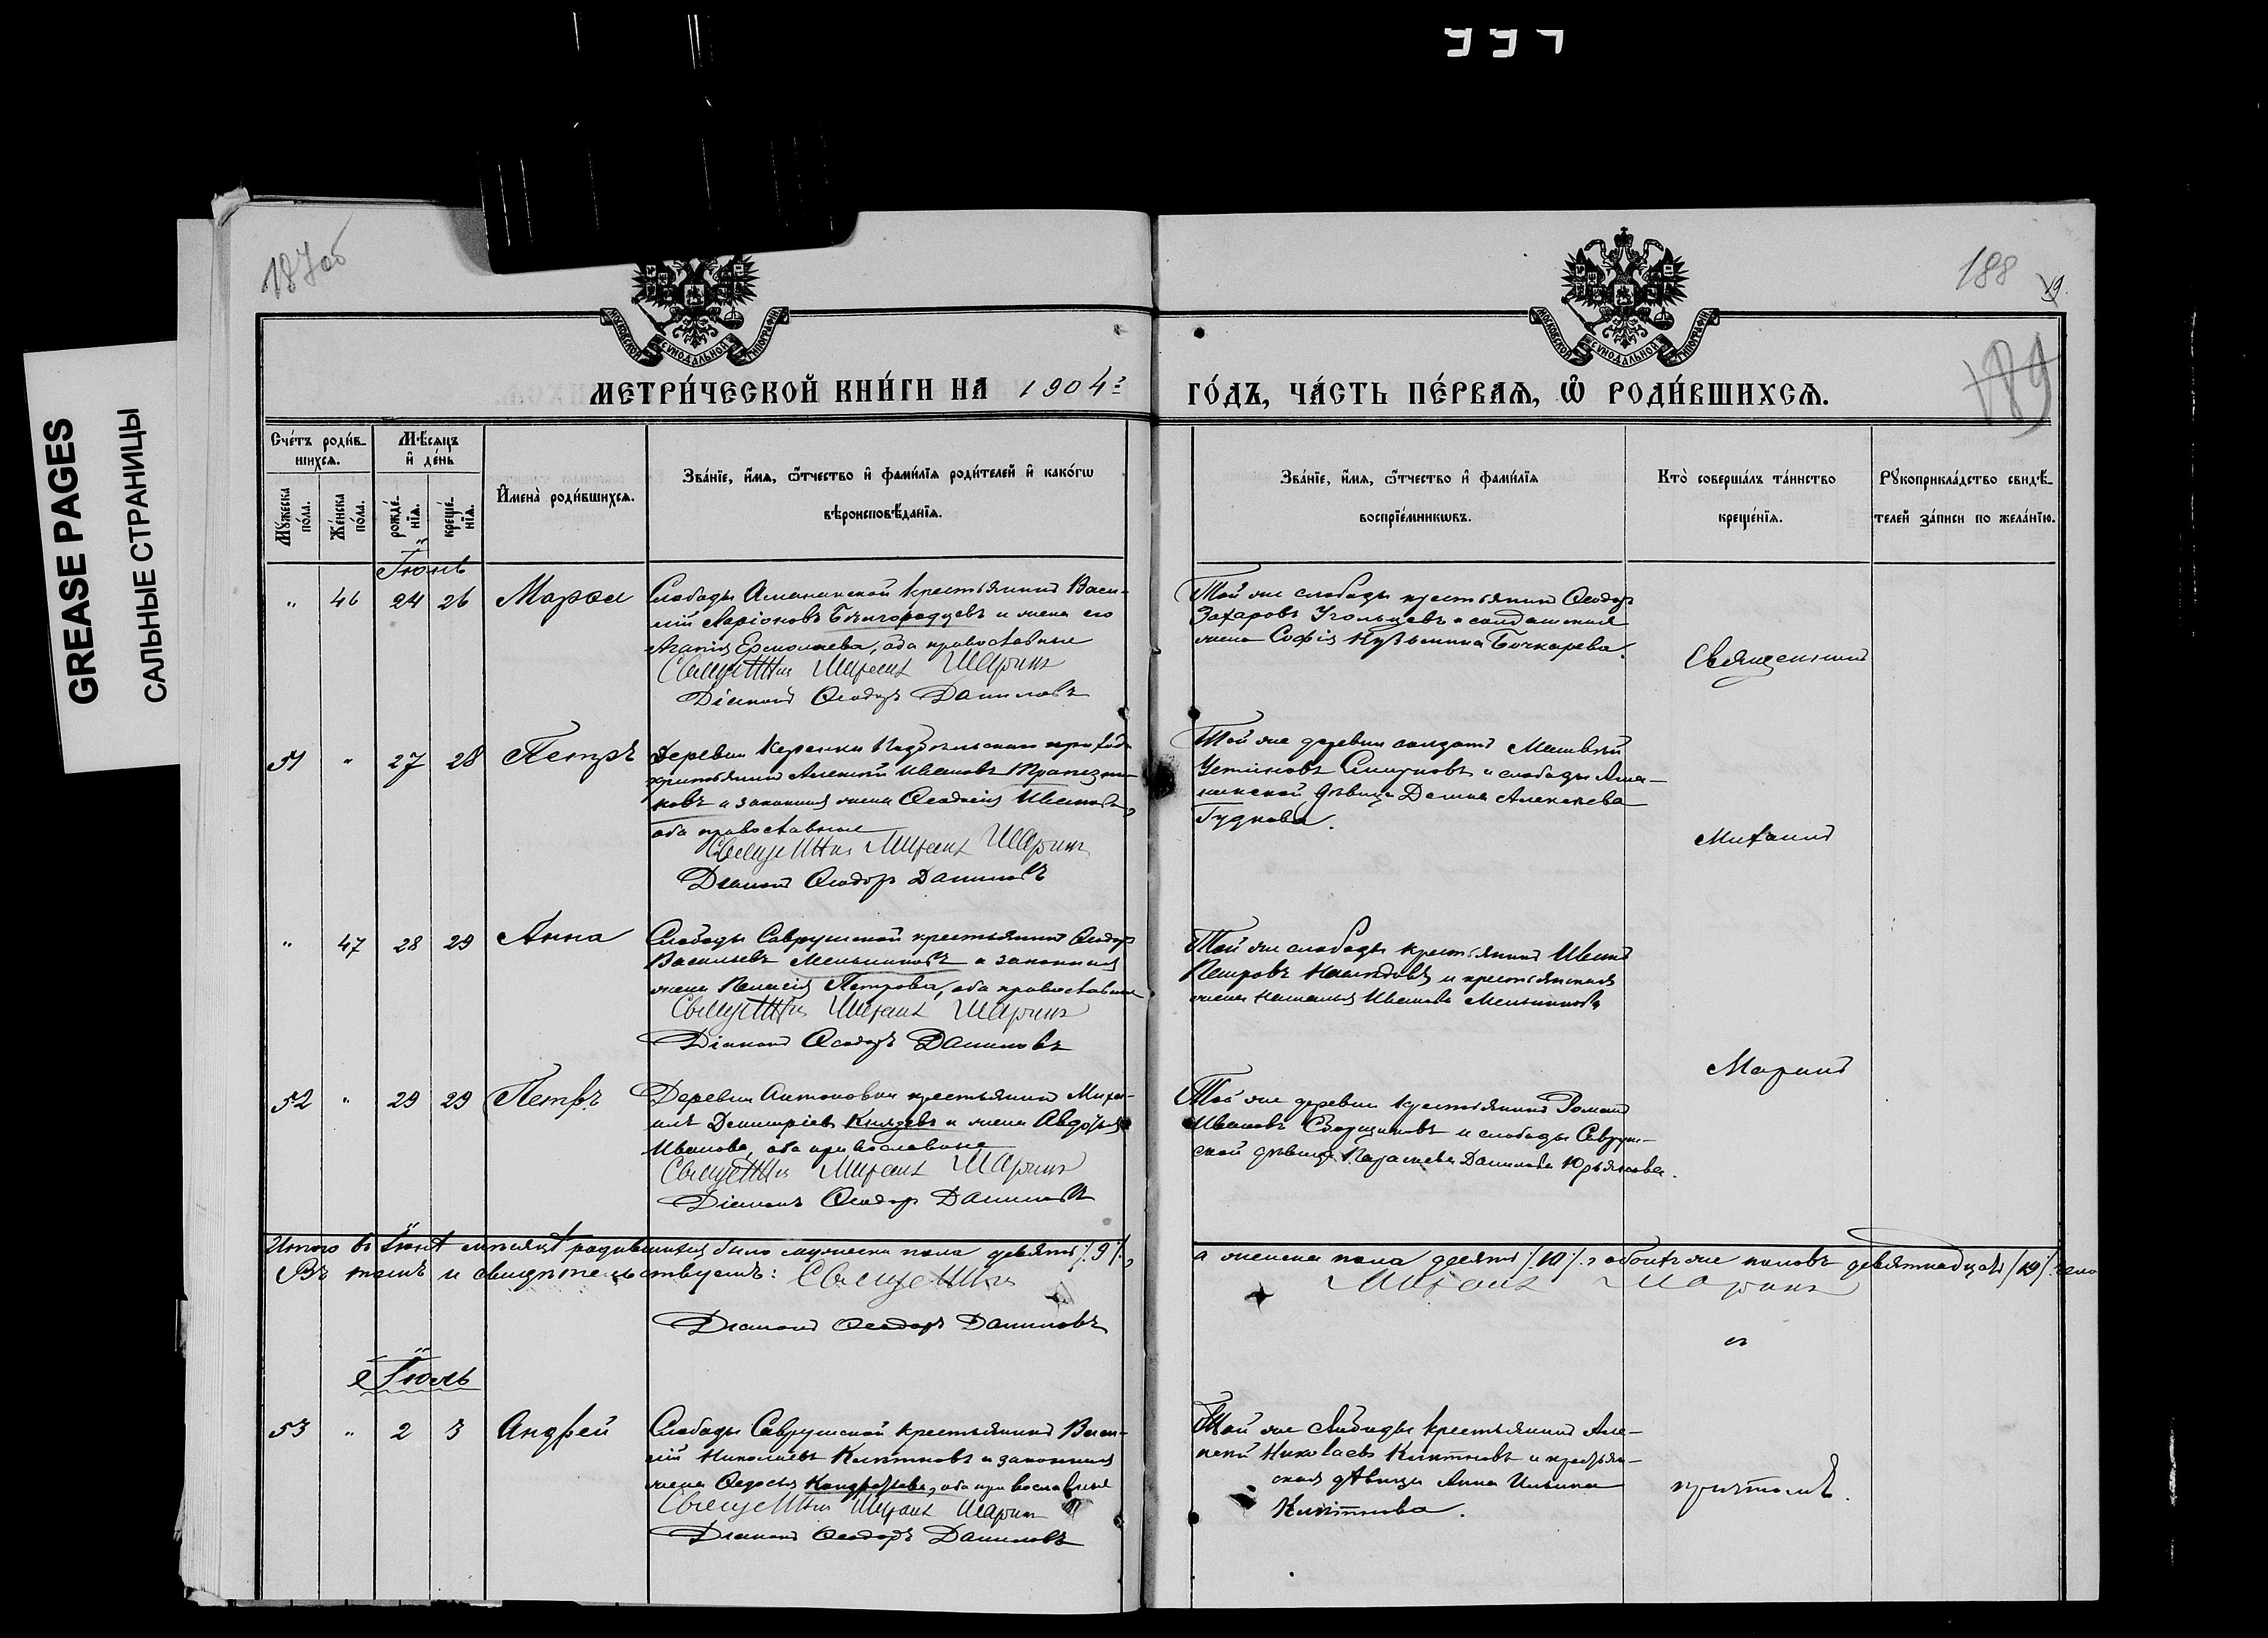 GREASE PAGES
САЛЬНЫЕ СТРАНИЦЫ
187об
188
19.
189
МОСКОВСКОЙ СѴНОДАЛЬНОЙ ТИПОГРАФІИ
МОСКОВСКОЙ СѴНОДАЛЬНОЙ ТИПОГРАФІИ
МЕТРИ́ЧЕСКОЙ КНИ́ГИ НА 1904 ГО́ДЪ, ЧА́СТЬ ПЕ́РВАѦ, Ѽ РОДИ́ВШИХСѦ.
Сче́тъ роди́в-
шихсѧ.
Мꙋ́жеска по́ла.
Же́нска по́ла.
Мѣ́сѧцъ
и҆ де́нь
рожде́-нїѧ.
креще́-нїѧ.
И҆мена̀ роди́вшихсѧ.
Зва́нїе, и҆́мѧ, ѻ҆́тчество и҆ фами́лїѧ роди́телей и҆ како́гѡ
вѣроисповѣ́данїѧ.
Зва́нїе, и҆́мѧ, ѻ҆́тчество и҆ фами́лїѧ
воспрїе́мникѡвъ.
Кто̀ соверша́лъ та́инство
креще́нїѧ.
Рꙋкоприкла́дство свидѣ́-
телей за́писи по жела́нїю.
Іюнь
" 46 24 26 Марѳа
Слободы Аманинской крестьянинъ Васи-
лій Ларіоновъ Бѣлгородцевъ и жена его
Агапія Ермолаева, оба православные
Священникъ Михаилъ Маринъ
Діаконъ Ѳеодоръ Даниловъ
Той же слободы крестьянинъ Ѳеодоръ
Захаровъ Угольцевъ и солдатская
жена Софія Кузьмина Бочкарева.
Священникъ
51 " 27 28 Петръ
Деревни Керенки прихода
крестьянинъ Алексій Ивановъ Трапезни-
ковъ и законная жена Ѳеодосія Иванова,
оба православные
Священникъ Михаилъ Маринъ
Діаконъ Ѳеодоръ Даниловъ
Той же деревни солдатъ Матвѣй
Устиновъ Смирновъ и слободы Ама-
нинской дѣвица Домна Алексѣева
Гуднова.
Михаилъ
" 47 28 29 Анна
Слободы Саврушской крестьянинъ Ѳеодоръ
Васильевъ Мельниковъ и законная
жена Пелагія Петрова, оба православные
Священникъ Михаилъ Маринъ
Діаконъ Ѳеодоръ Даниловъ
Той же слободы крестьянинъ Иванъ
Петровъ и крестьянская
жена Наталья Иванова Мельникова
Маринъ
52 " 29 29 Петръ
Деревни Антоновки крестьянинъ Миха-
илъ Димитріевъ Князевъ и жена Авдотья
Иванова, оба православные
Священникъ Михаилъ Маринъ
Діаконъ Ѳеодоръ Даниловъ
Той же деревни крестьянинъ Романъ
Ивановъ и слободы Савруш-
ской дѣвица Параскева Данилова Юрьянова.
Итого въ Іюнѣ мѣсяцѣ родившихся было мужеска пола девять /9/, а женска пола десять /10/, обоихъ же половъ девятнадцать /19/ чело
Въ томъ и свидѣтельствуемъ: Священникъ Михаилъ Маринъ
Діаконъ Ѳеодоръ Даниловъ
съ
Іюль
53 " 2 3 Андрей
Слободы Саврушской крестьянинъ Васи-
лій Николаевъ и законная
жена Ѳедосья Кондратьева, оба православные
Священникъ Михаилъ Маринъ
Діаконъ Ѳеодоръ Даниловъ
Той же слободы крестьянинъ Але-
ксѣй Николаевъ и крестьян-
ская дѣвица Анна Ильина
причтомъ.